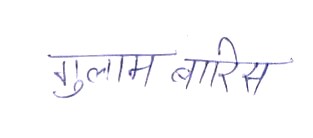 गुलाम वारिस